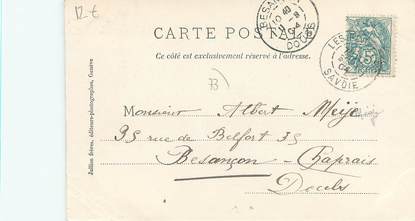 12-€
CARTE POSTALE
Ce côté est exclusivement réservé à l'adresse.
BESANÇON
DOUBS
LES
SAVOIE
5
33
Monsieur Albert
35 rue de Belfort 35
Besançon - Chaprais
Doubs
Jullien frères, éditeurs-photographes, Genève